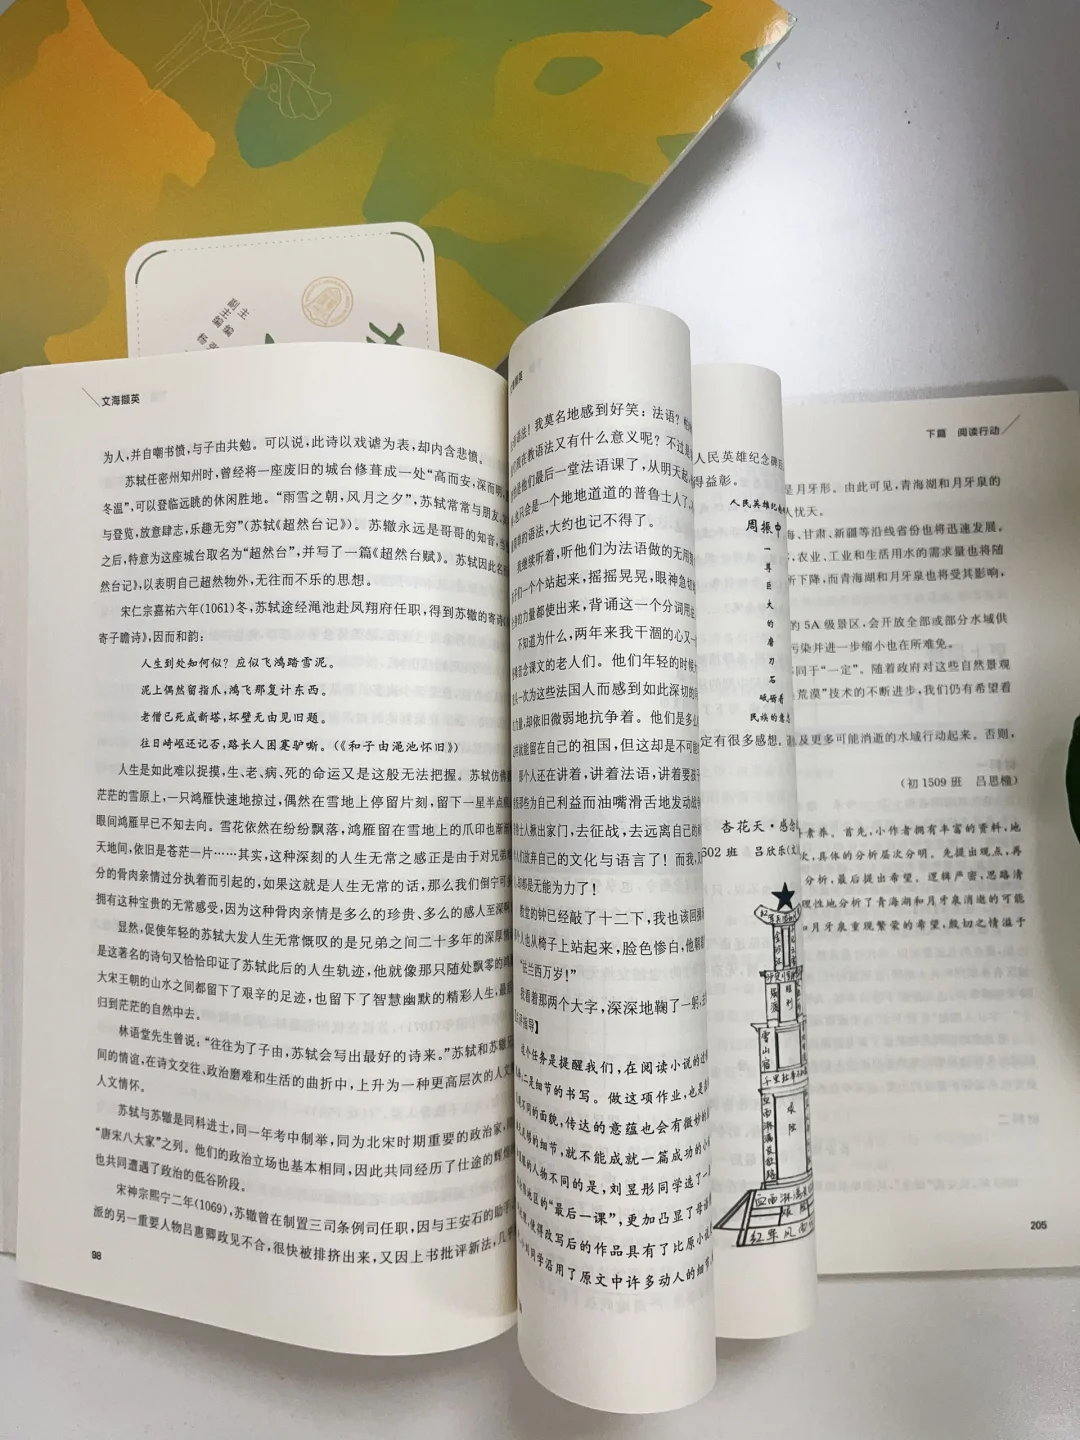 主编
副主编
杨
文海撷英
为人,并自嘲书愤,与子由共勉。可以说,此诗以戏谑为表,却内含悲愤。
苏轼任密州知州时,曾经将一座废旧的城台修葺成一处“高而安,深而明,
冬温”,可以登临远眺的休闲胜地。“雨雪之朝,风月之夕”,苏轼常常与朋友、
与登览,放意肆志,乐趣无穷”(苏轼《超然台记》)。苏辙永远是哥哥的知音,当
之后,特意为这座城台取名为“超然台”,并写了一篇《超然台赋》。苏轼因此名
然台记》,以表明自己超然物外,无往而不乐的思想。
宋仁宗嘉祐六年(1061)冬,苏轼途经渑池赴凤翔府任职,得到苏辙的寄诗《
寄子瞻诗》,因而和韵:
人生到处知何似?应似飞鸿踏雪泥。
泥上偶然留指爪,鸿飞那复计东西。
老僧已死成新塔,坏壁无由见旧题。
往日崎岖还记否,路长人困蹇驴嘶。(《和子由渑池怀旧》)
人生是如此难以捉摸,生、老、病、死的命运又是这般无法把握。苏轼仿佛
茫茫的雪原上,一只鸿雁快速地掠过,偶然在雪地上停留片刻,留下一星半点
眼间鸿雁早已不知去向。雪花依然在纷纷飘落,鸿雁留在雪地上的爪印也渐渐
天地间,依旧是苍茫一片……其实,这种深刻的人生无常之感正是由于对兄弟
分的骨肉亲情过分执着而引起的,如果这就是人生无常的话,那么我们倒宁可
拥有这种宝贵的无常感受,因为这种骨肉亲情是多么的珍贵、多么的感人至深啊
显然,促使年轻的苏轼大发人生无常慨叹的是兄弟之间二十多年的深厚情
是这著名的诗句又恰恰印证了苏轼此后的人生轨迹,他就像那只随处飘零的鸿
大宋王朝的山水之间都留下了艰辛的足迹,也留下了智慧幽默的精彩人生,最
归到茫茫的自然中去。
林语堂先生曾说:“往往为了子由,苏轼会写出最好的诗来。”苏轼和苏辙
间的情谊,在诗文交往、政治磨难和生活的曲折中,上升为一种更高层次的人文
人文情怀。
苏轼与苏辙是同科进士,同一年考中制举,同为北宋时期重要的政治家,同
“唐宋八大家”之列。他们的政治立场也基本相同,因此共同经历了仕途的辉煌
也共同遭遇了政治的低谷阶段。
宋神宗熙宁二年(1069),苏辙曾在制置三司条例司任职,因与王安石的助手、
派的另一重要人物吕惠卿政见不合,很快被排挤出来,又因上书批评新法,几乎
98
语法!我莫名地感到好笑:法语?
现在教语法又有什么意义呢?不过是
是他们最后一堂法语课了,从明天起
只会是一个地地道道的普鲁士人了,
的语法,大约也记不得了。
我继续听着,听他们为法语做的无用
们一个个站起来,摇摇晃晃,眼神急切
的力量都使出来,背诵这一个分词用法
不知道为什么,两年来我干涸的心又一
念课文的老人们。他们年轻的时候
一次为这些法国人而感到如此深切的
力量,却依旧微弱地抗争着。他们是多么
就能留在自己的祖国,但这却是不可能
那个人还在讲着,讲着法语,讲着要孩子
那些为自己利益而油嘴滑舌地发动战
士人揪出家门,去征战,去远离自己的
们放弃自己的文化与语言了!而我,又
却是无能为力了!
教堂的钟已经敲了十二下,我也该回
人也从椅子上站起来,脸色惨白,他朝着
“法兰西万岁!”
我看着那两个大字,深深地鞠了一躬,
指导】
这个任务是提醒我们,在阅读小说的过
二是细节的书写。做这项作业,也是
不同的面貌,传达的意蕴也会有微妙的
的细节,就不能成就一篇成功的小
的人物不同的是,刘昱彤同学选了一
地区的“最后一课”,更加凸显了母语
使得改写后的作品具有了比原小说
同学沿用了原文中许多动人的细节
人民英雄纪念碑
得益彰。
人民英雄纪念
周振中
一
尊
巨
大
的
磨
刀
石
砥砺着
民族的意志
定有很多感想,
杏花天·感念
602班 吕欣乐(文
雪山宿
千里北
艰险
血雨淋
红军风雨
下篇 阅读行动
是月牙形。由此可见,青海湖和月牙泉的
人忧天。
海、甘肃、新疆等沿线省份也将迅速发展。
,农业、工业和生活用水的需求量也将随
下降,而青海湖和月牙泉也将受其影响,
的5A级景区,会开放全部或部分水域供
污染并进一步缩小也在所难免。
不同于“一定”。随着政府对这些自然景观
荒漠”技术的不断进步,我们仍有希望看
及更多可能消逝的水域行动起来。否则,
(初1509班 吕思橦)
素养。首先,小作者拥有丰富的资料,地
次,具体的分析层次分明。先提出观点,再
分析,最后提出希望。逻辑严密,思路清
理性地分析了青海湖和月牙泉消逝的可能
和月牙泉重现繁荣的希望,殷切之情溢于
205